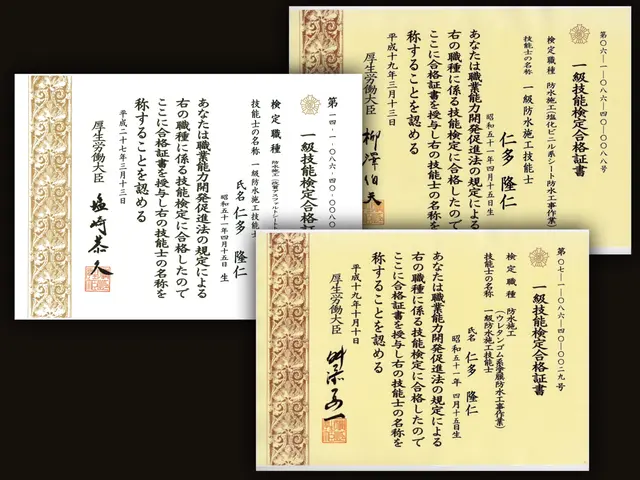 第〇六―一―〇八六―四〇―〇〇八八号
一級技能検定合格証書
検定職種 防水施工(塩化ビニル系シート防水工事作業)
技能士の名称 一級防水施工技能士
仁多 隆仁
昭和五十一年四月十五日生
あなたは職業能力開発促進法の規定による
右の職種に係る技能検定に合格したので
ここに合格証書を授与し右の技能士の名称を
称することを認める
平成十九年三月十三日
厚生労働大臣 柳澤伯夫
第一四―一―〇八六―四〇―〇〇八
一級技能検定合格証
検定職種 防水施工
技能士の名称 一級防水施工技能士
氏名 仁多 隆仁
昭和五十一年四月十五日 生
あなたは職業能力開発促進法の規定による
右の職種に係る技能検定に合格したので
ここに合格証書を授与し右の技能士の名称を
称することを認める
平成二十七年三月十三日
厚生労働大臣 塩崎恭久
第〇七―一―〇八六―四〇―〇〇二九号
一級技能検定合格証書
検定職種 防水施工
(ウレタンゴム系塗膜防水工事作業)
技能士の名称 一級防水施工技能士
氏名 仁多 隆仁
昭和五十一年 四月十五日生
あなたは職業能力開発促進法の規定による
右の職種に係る技能検定に合格したので
ここに合格証書を授与し右の技能士の名称を
称することを認める
平成十九年十月十日
厚生労働大臣 舛添要一